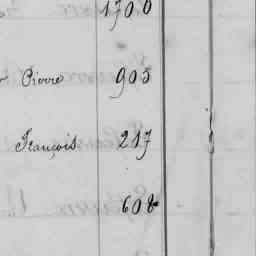 1700
Pierre 905
François 217
608